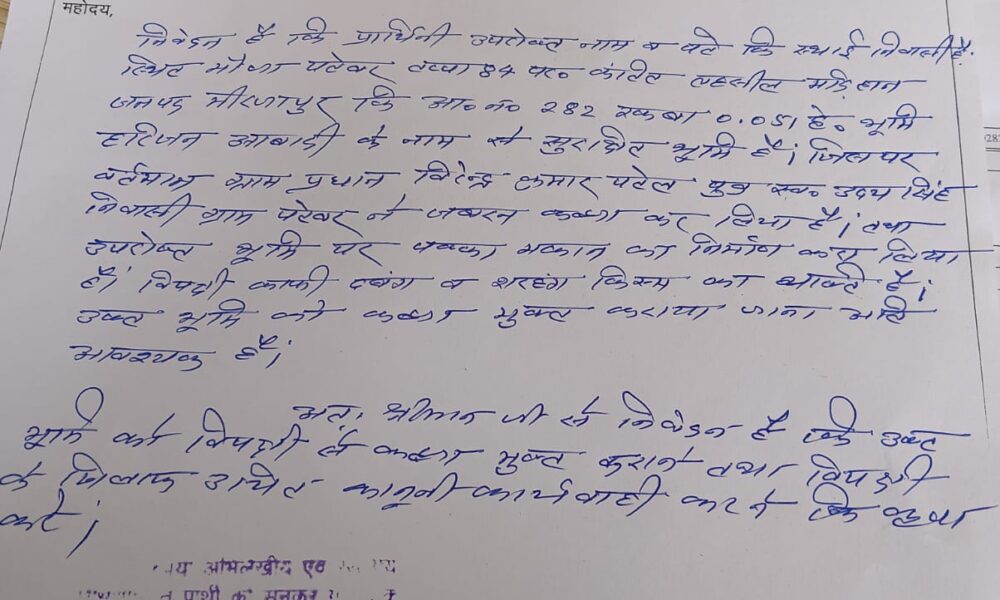 महोदय,
निवेदन है कि प्रार्थिनी उपरोक्त नाम व पते कि स्थाई निवासी है।
स्थित मौजा पटेवर तप्पा 84 पर० कंतित तहसील मड़िहान
जनपद मीरजापुर कि आ० न० 282 रकबा 0.051 हे० भूमि
हरिजन आबादी के नाम से सुरक्षित भूमि है। जिसपर
वर्तमान ग्राम प्रधान विरेन्द्र कुमार पटेल पुत्र स्व० उदय सिंह
निवासी ग्राम पटेवर ने जबरन कब्जा कर लिया है। तथा
उपरोक्त भूमि पर पक्का मकान का निर्माण करा लिया
है। विपक्षी काफी दबंग व सरहंग किस्म का व्यक्ति है।
उक्त भूमि को कब्जा मुक्त कराया जाना अति
आवश्यक है।
अतः श्रीमान जी से निवेदन है कि उक्त
भूमि को विपक्षी से कब्जा मुक्त कराने तथा विपक्षी
के खिलाफ उचित कानूनी कार्यवाही करने कि कृपा
करें।